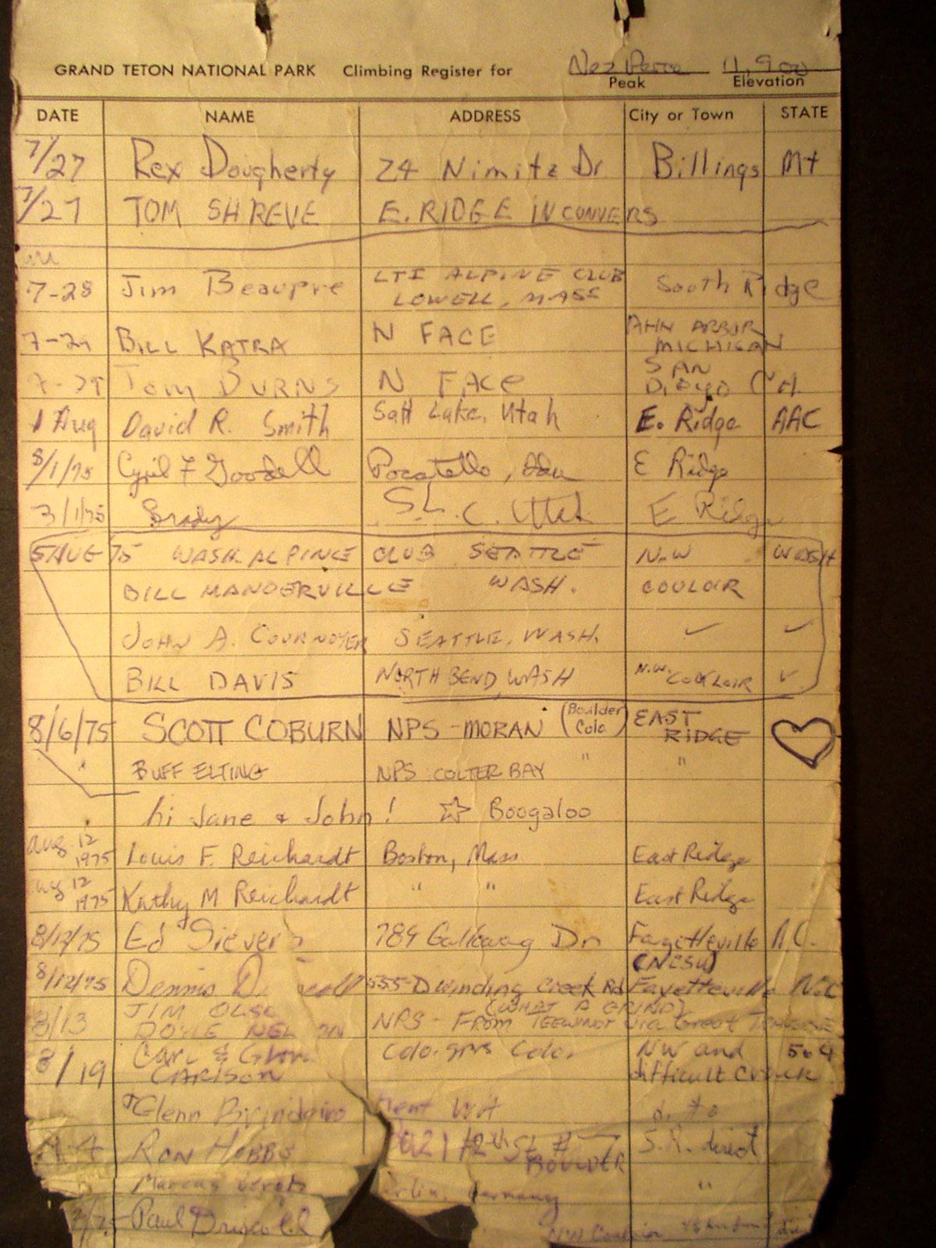 Nez Perce 11,900
GRAND TETON NATIONAL PARK Climbing Register for Peak Elevation
DATE NAME ADDRESS City or Town STATE
7/27 Rex Dougherty 24 Nimitz Dr Billings Mt
7/27 TOM SHREVE E. RIDGE IN CONVERS
7-28 Jim Beaupre LTI ALPINE CLUB South Ridge
LOWELL, MASS
7-29 BILL KATRA N FACE ANN ARBOR
MICHIGAN
Tom BURNS N FACE SAN
DIEGO Cal
1 Aug David R. Smith Salt Lake, Utah E. Ridge AAC
8/1/75 Cyril F Goodell Pocatello, Ida E Ridge
8/1/75 Brady S.L.C. Utah E Ridge
5 AUG 75 WASH. ALPINE CLUB SEATTLE N.W WASH
BILL MANDERVILLE WASH. COULOIR
JOHN A. COURNOYER SEATTLE, WASH. ✓ ✓
BILL DAVIS NORTH BEND, WASH N.W. COULOIR ✓
8/6/75 SCOTT COBURN NPS-MORAN (Boulder Colo) EAST RIDGE
" BUFF ELTING NPS COLTER BAY " "
hi Jane & John! ☆ Boogaloo
Aug 12 1975 Louis F. Reichardt Boston, Mass East Ridge
Aug 12 1975 Kathy M Reichardt " " East Ridge
8/12/75 Ed Sievers 789 Galloway Dr Fayetteville N.C.
(NCSU)
8/12/75 Dennis 555 Dwinding Creek Rd Fayetteville N.C.
(WHAT A GRIND)
8/13 JIM OLSE NPS - FROM TEEWINOT via Great Traverse
DOYLE NELSON
8/19 Carl & Colo. spgs Colo. NW and
CARLSON difficult
Glenn Kent WA
RON HOBBS 12th St # 7 S.R. direct
BOULDER
Marcus Germany "
Paul Driscoll
NW Couloir